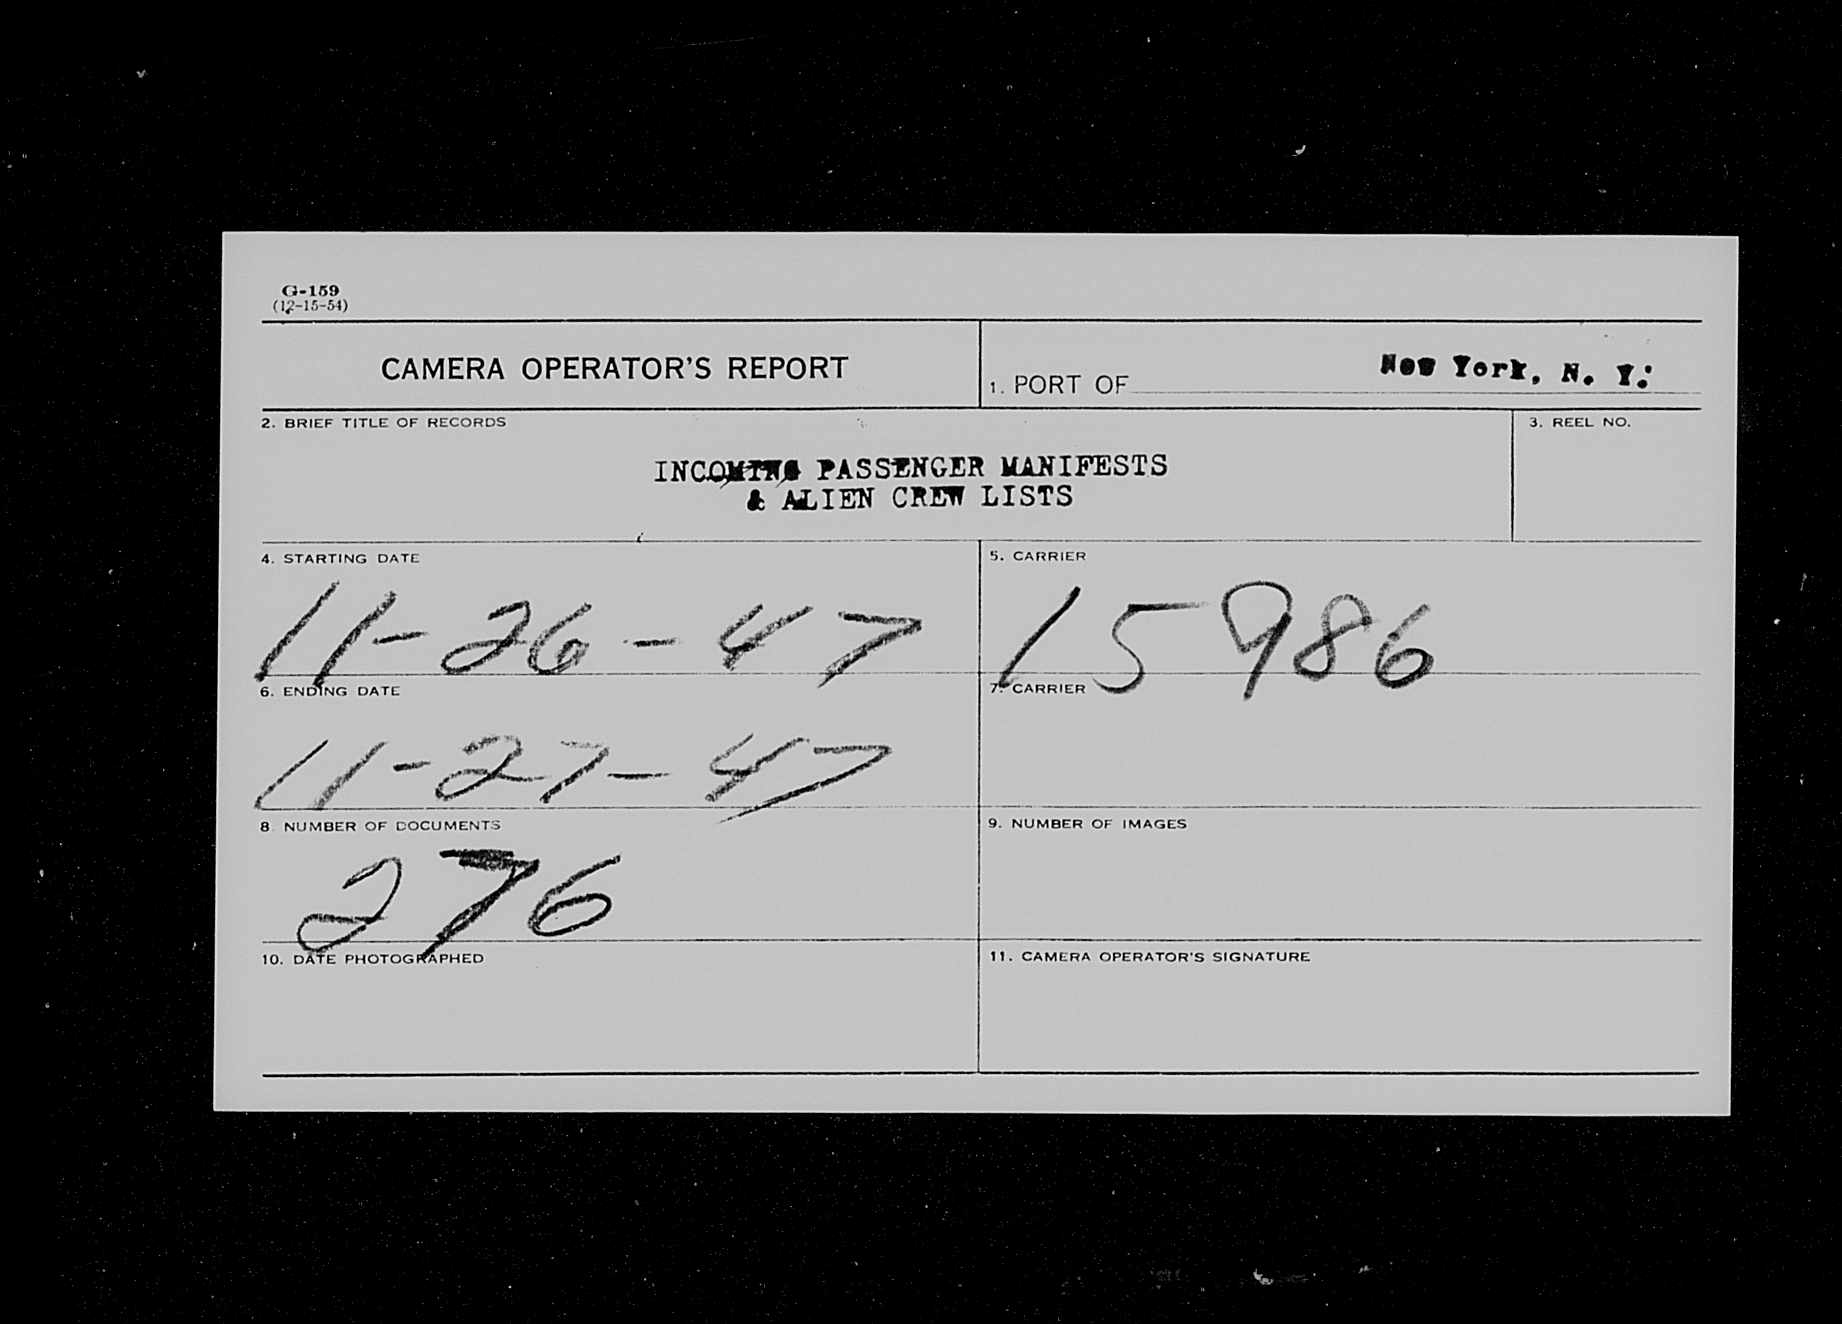 G-159
(12-15-54)
CAMERA OPERATOR'S REPORT
1. PORT OF New York, N. Y.
2. BRIEF TITLE OF RECORDS
3. REEL NO.
INCOMING PASSENGER MANIFESTS
& ALIEN CREW LISTS
4. STARTING DATE
11-26-47
5. CARRIER
15986
6. ENDING DATE
11-27-47
7. CARRIER
8. NUMBER OF DOCUMENTS
276
9. NUMBER OF IMAGES
10. DATE PHOTOGRAPHED
11. CAMERA OPERATOR'S SIGNATURE